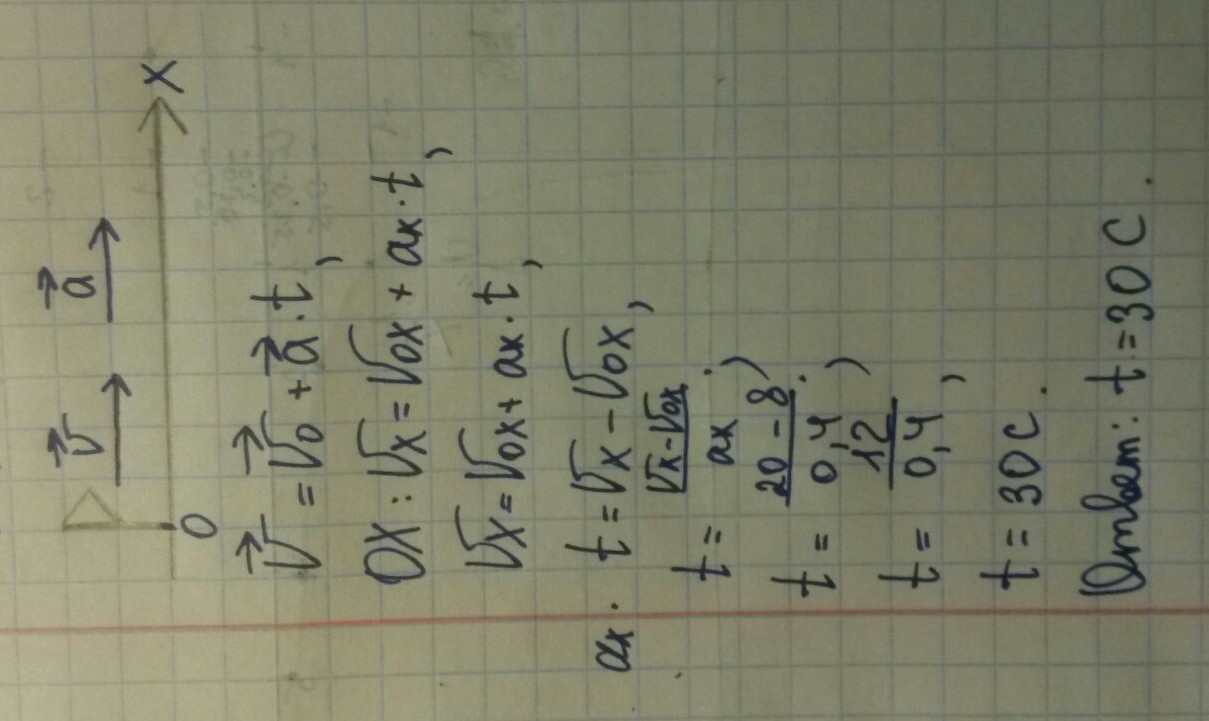 v⃗ a⃗
0 X
v⃗ = v⃗₀ + a⃗ · t,
OX: vx = v₀x + ax · t,
vx = v₀x + ax · t,
ax · t = vx - v₀x,
t = (vx - v₀x)/ax;
t = (20 - 8)/0,4;
t = 12/0,4,
t = 30 с.
Ответ: t = 30 с.